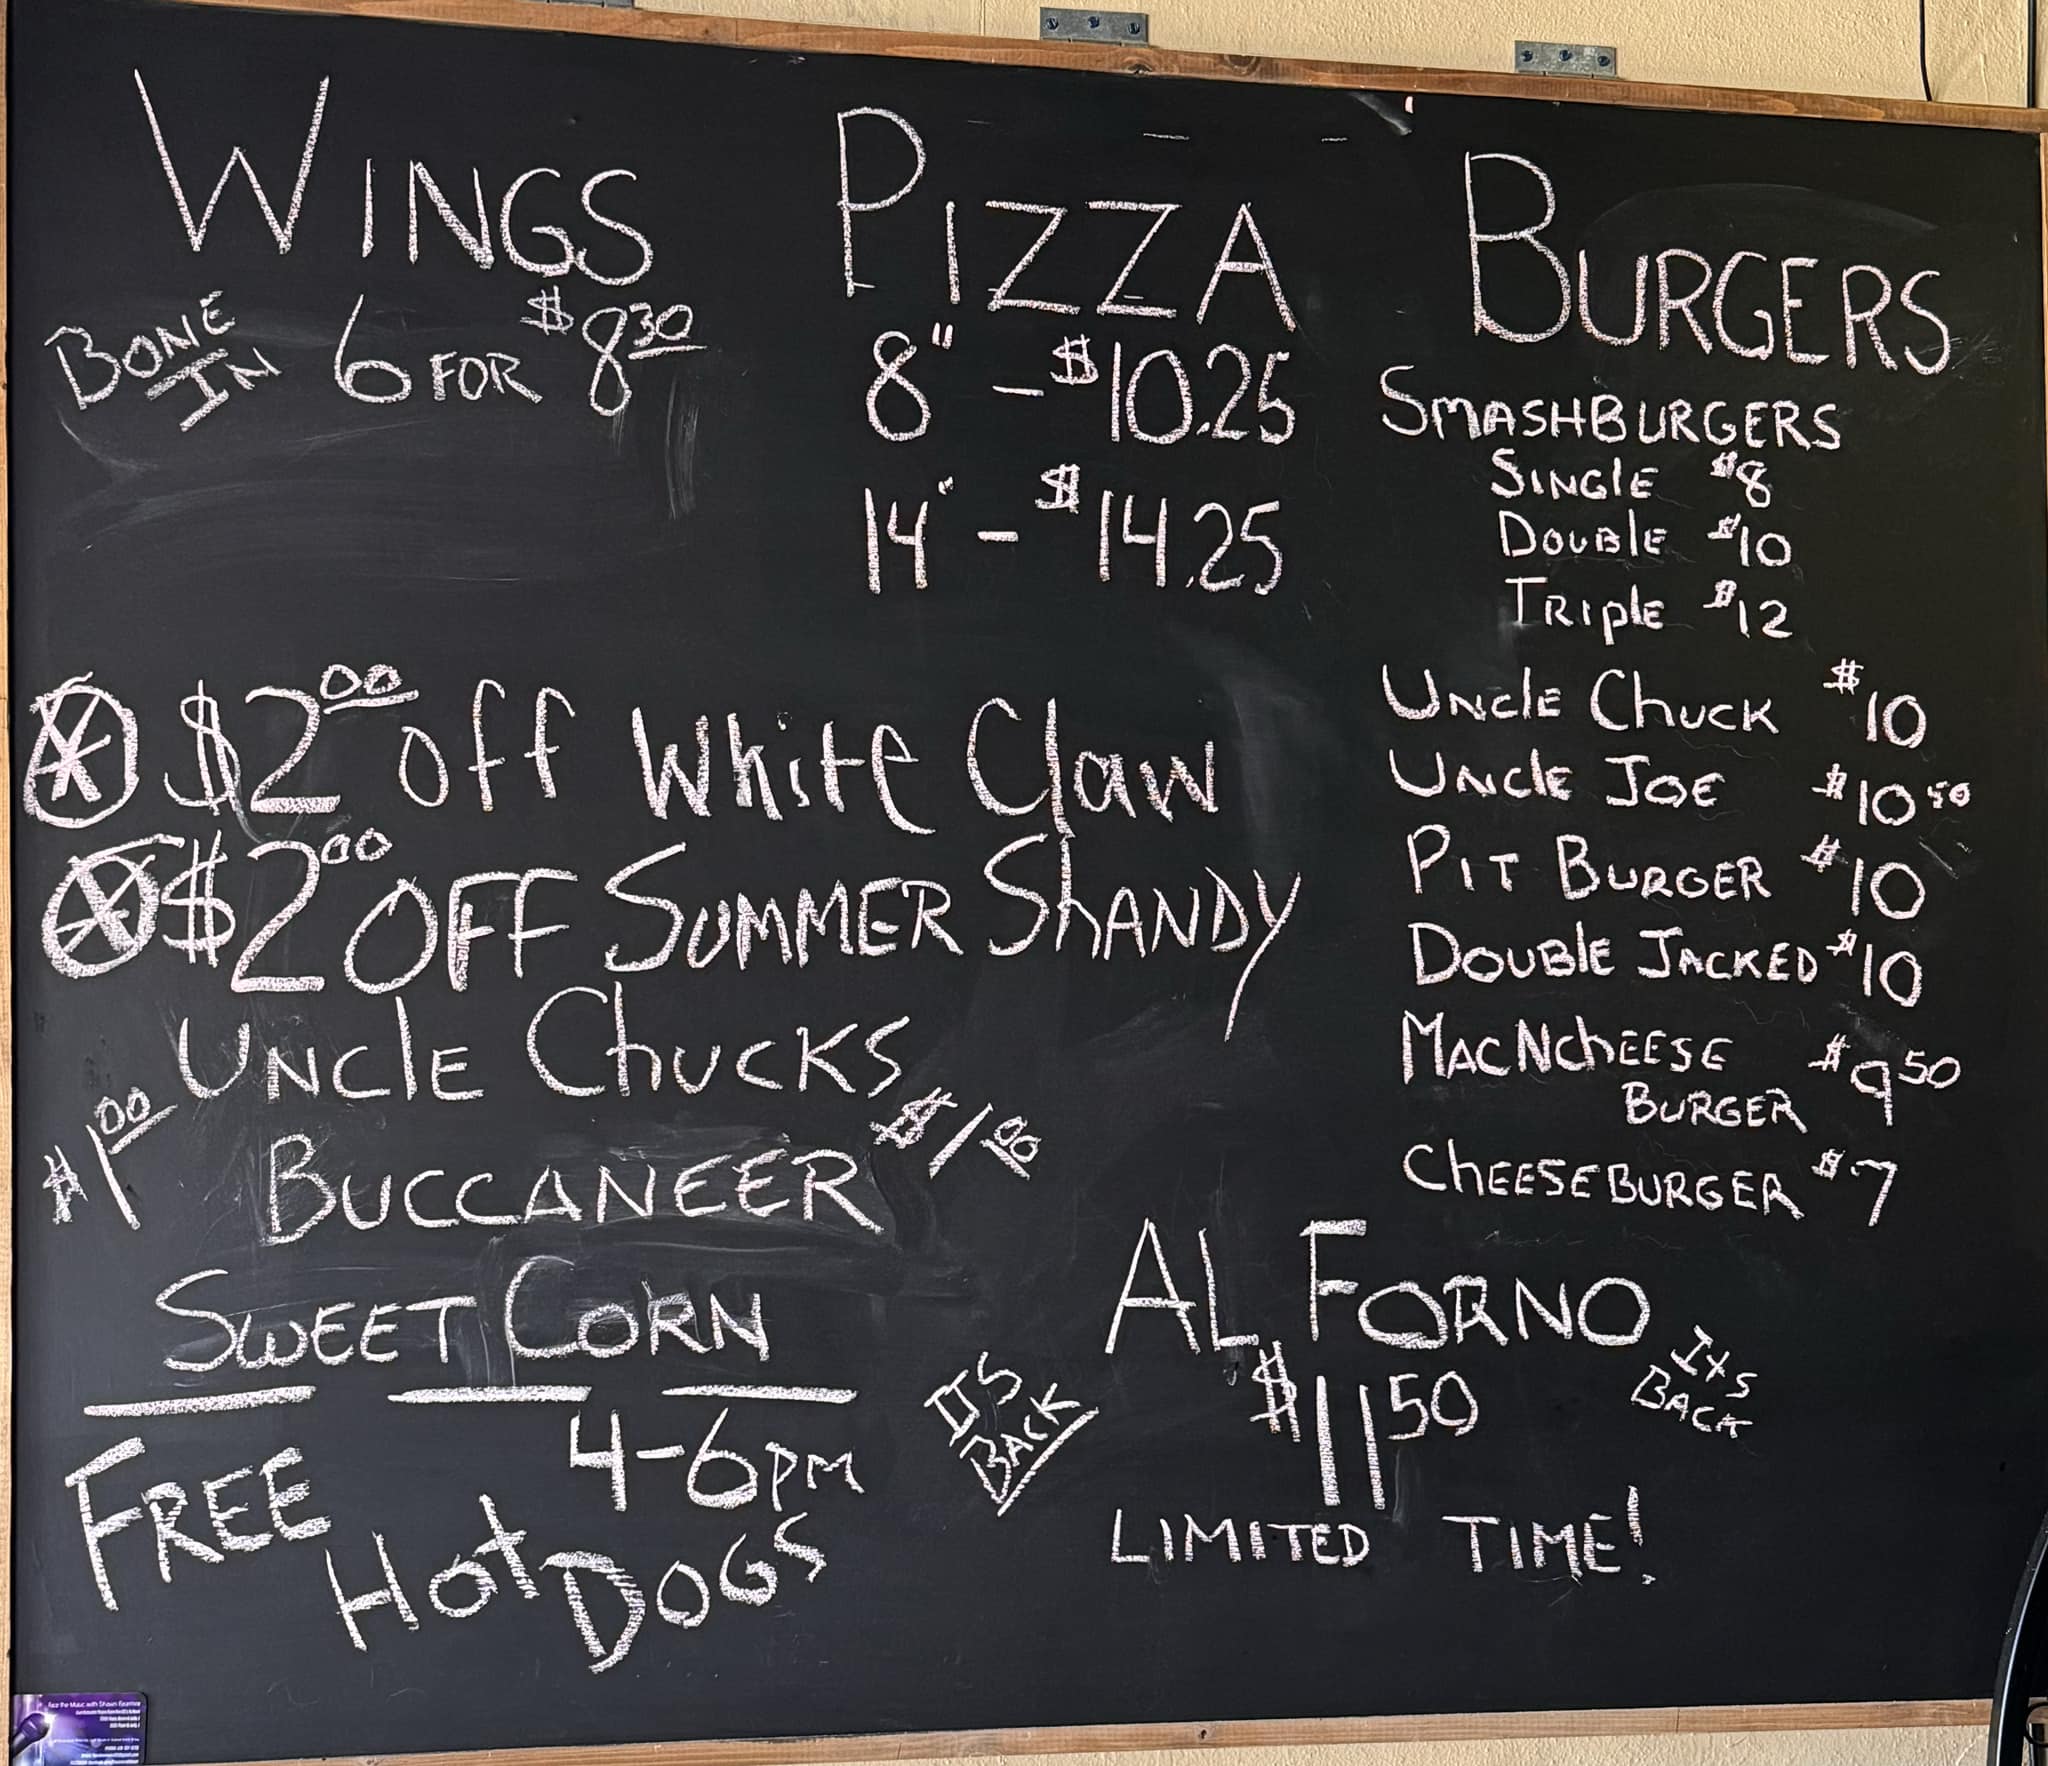 WINGS
BONE IN 6 FOR $8.30
PIZZA
8" - $10.25
14" - $14.25
BURGERS
SMASHBURGERS
SINGLE $8
DOUBLE $10
TRIPLE $12
UNCLE CHUCK $10
UNCLE JOE $10.50
PIT BURGER $10
DOUBLE JACKED $10
MACNCHEESE $9.50
BURGER
CHEESEBURGER $7
$2.00 off White Claw
$2.00 OFF SUMMER SHANDY
UNCLE CHUCKS
$1.00 BUCCANEER $1.00
SWEET CORN
4-6PM
FREE
HOt DOGS
ITS
BACK
AL FORNO
$11.50
ITS
BACK
LIMITED TIME!